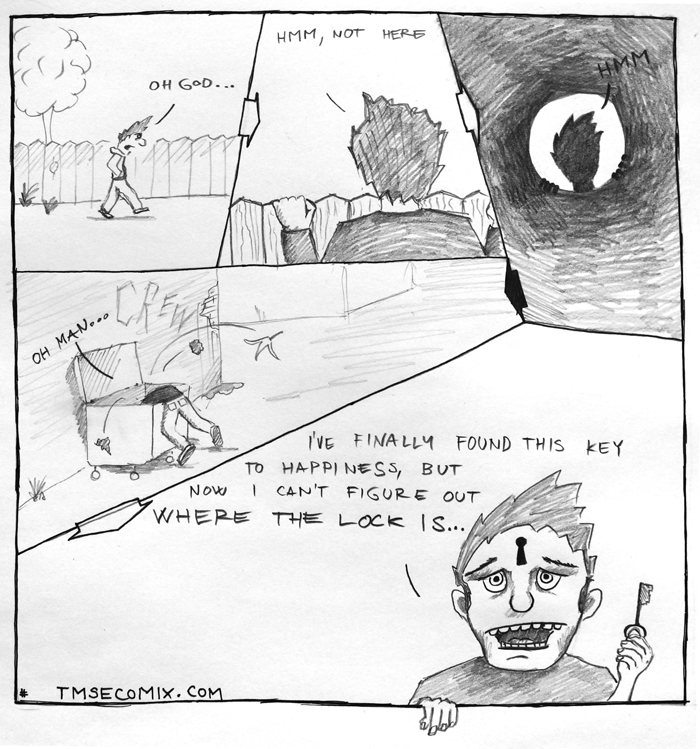 OH GOD...
HMM, NOT HERE
HMM
OH MAN...
CREW
I'VE FINALLY FOUND THIS KEY
TO HAPPINESS, BUT
NOW I CAN'T FIGURE OUT
WHERE THE LOCK IS...
# TMSECOMIX.COM